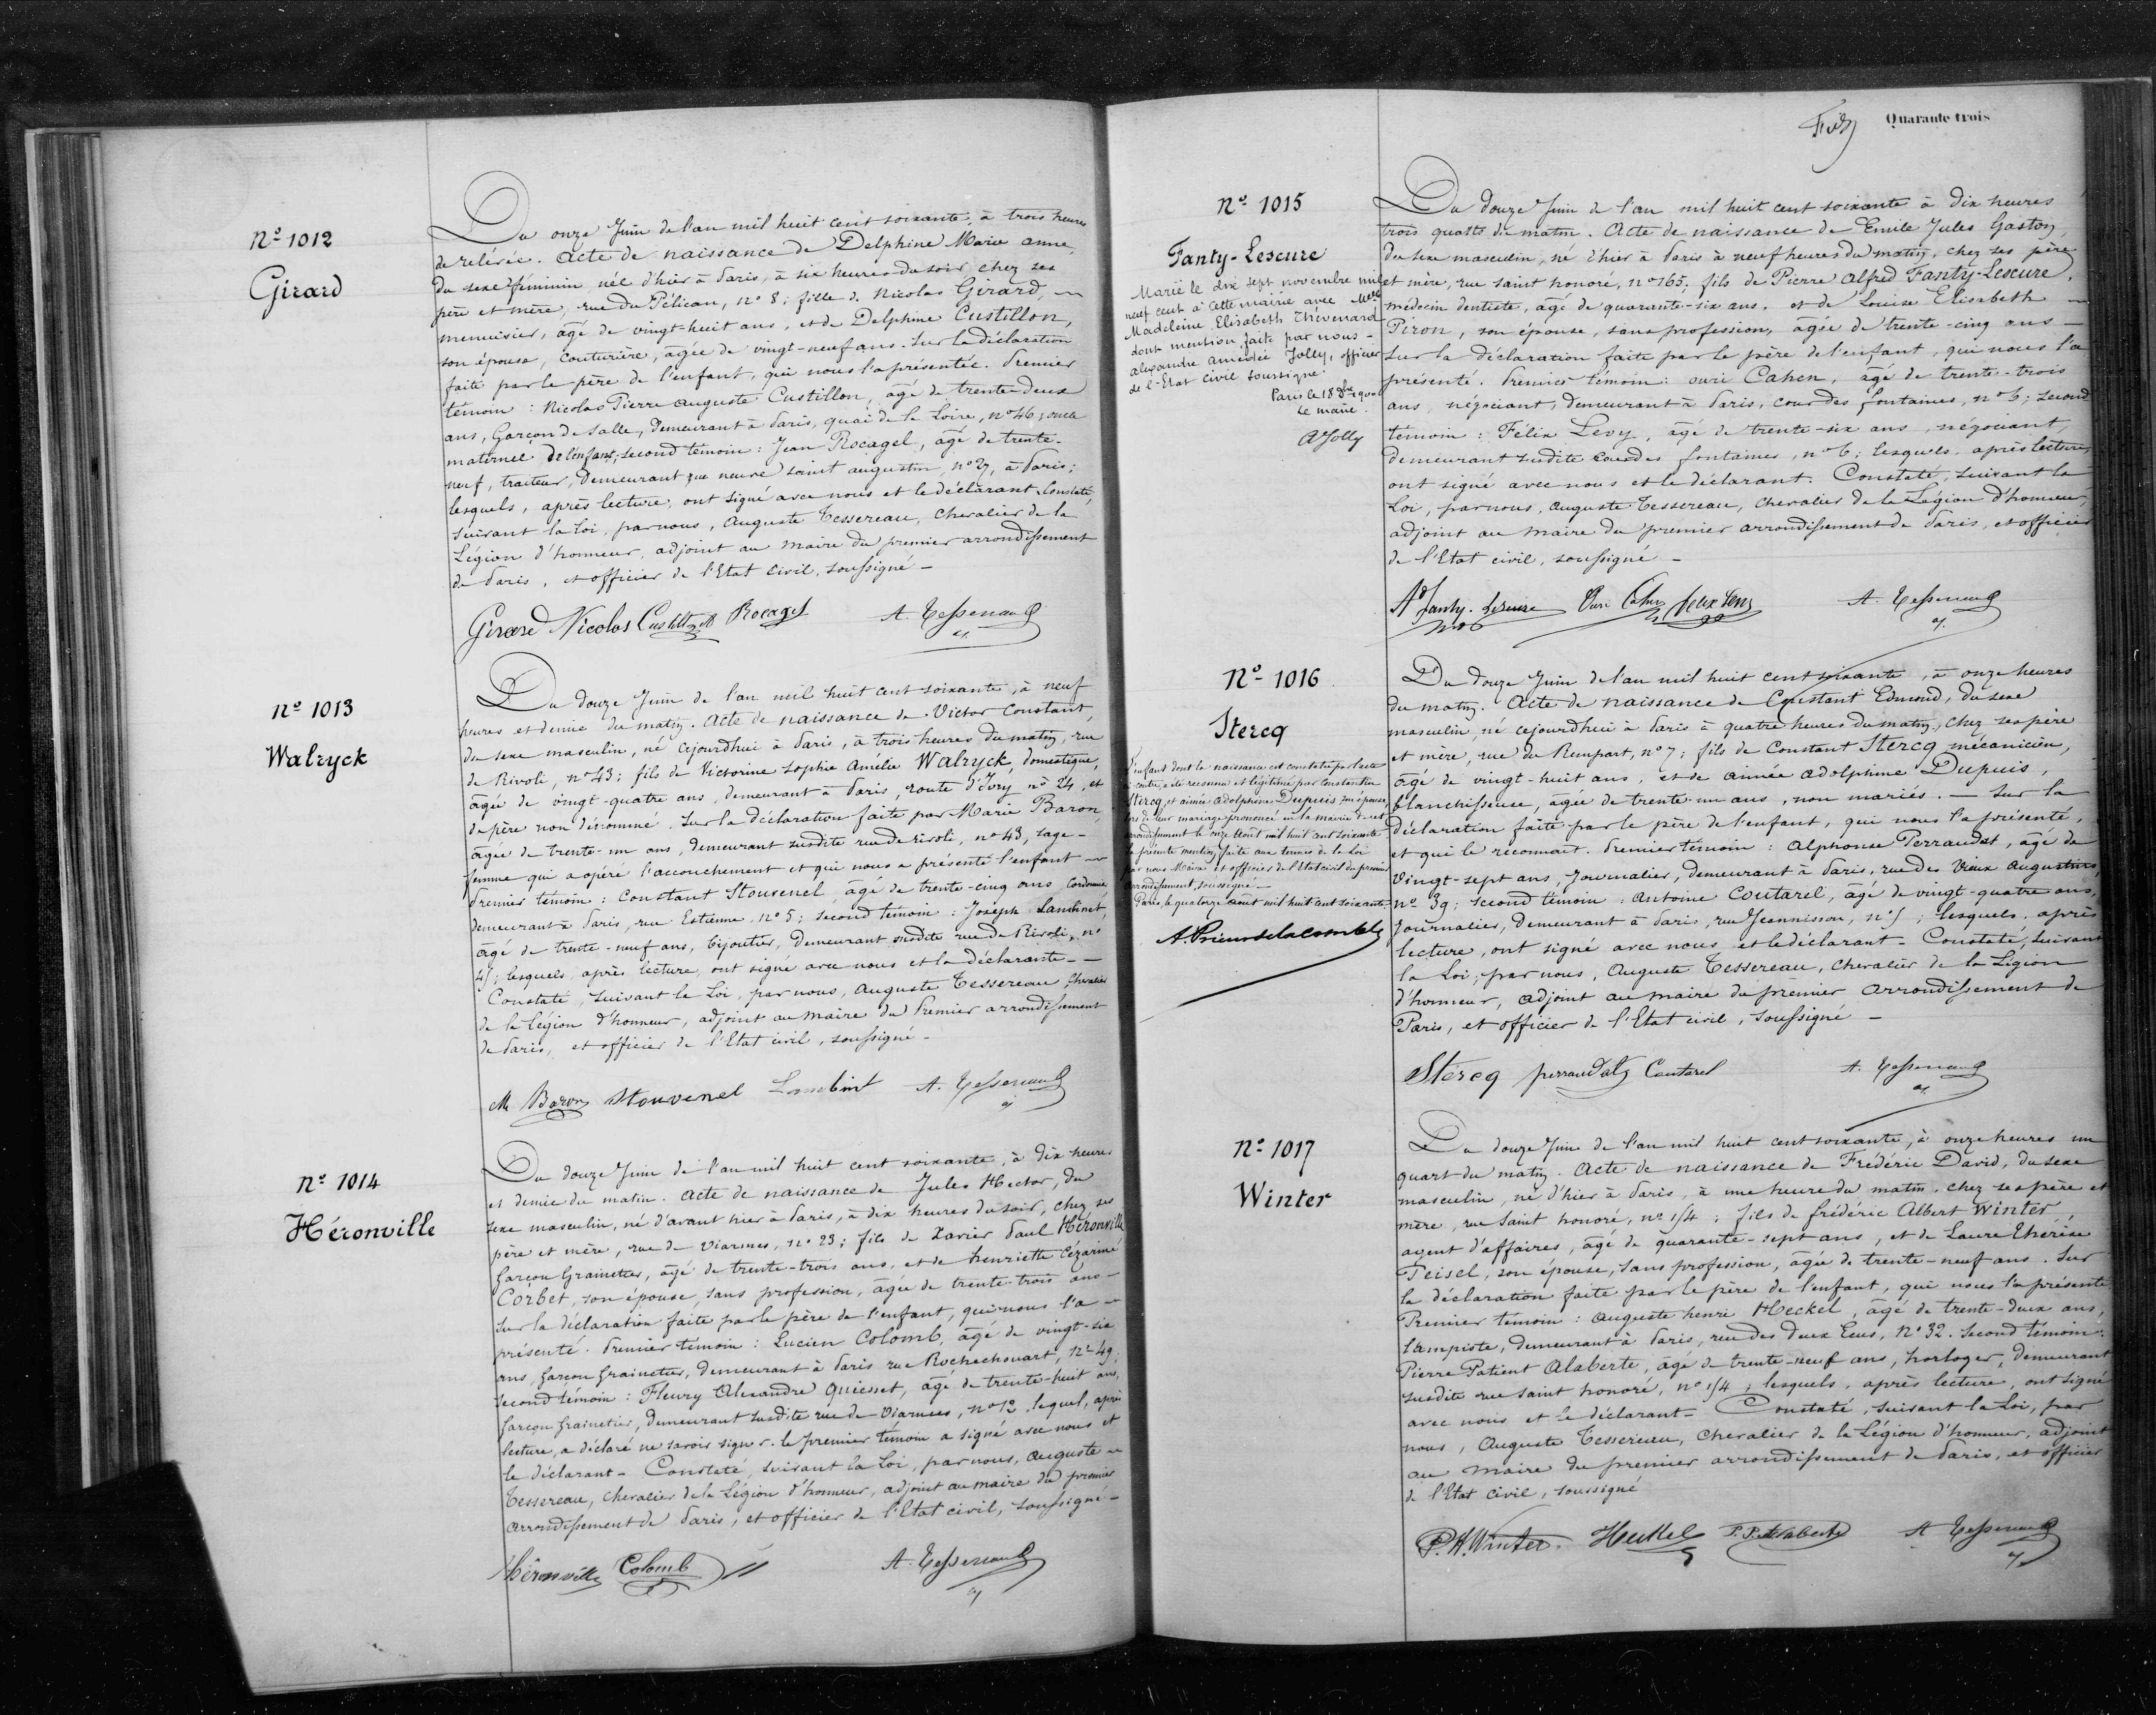 Nº 1012
Girard
Du onze Juin de l'an mil huit cent soixante, à trois heures
de relevée. Acte de naissance de Delphine Marie anne,
du sexe féminin, née d'hier à Paris, à six heures du soir, chez ses
père et mère, rue du Pélican, nº 8; fille de Nicolas Girard,
menuisier, âgé de vingt-huit ans, et de Delphine Custillon,
son épouse, couturière, âgée de vingt-neuf ans. Sur la déclaration
faite par le père de l'enfant, qui nous l'a présentée. Premier
témoin: Nicolas Pierre auguste Custillon, âgé de trente-deux
ans, Garçon de salle, demeurant à Paris, quai de la Loire, nº 46; oncle
maternel de l'enfant; second témoin: Jean Rocagel, âgé de trente-
neuf, traiteur, demeurant rue neuve saint augustin, nº 27, à Paris;
lesquels, après lecture, ont signé avec nous et le déclarant. Constaté,
suivant la Loi, par nous, Auguste Tessereau, Chevalier de la
Légion d'honneur, adjoint au maire du premier arrondissement
de Paris, et officier de l'Etat civil, soussigné -
Girard Nicolas Custillon Rocagel A. Tessereau
Nº 1013
Walryck
Du douze Juin de l'an mil huit cent soixante, à neuf
heures et demie du matin. Acte de naissance de Victor Constant,
du sexe masculin, né cejourdhui à Paris, à trois heures du matin, rue
de Rivoli, nº 43; fils de Victorine sophie Amélie Walryck, domestique,
âgée de vingt-quatre ans, demeurant à Paris, route d'Ivry nº 24, et
de père non dénommé. Sur la déclaration faite par Marie Baron,
âgée de trente-un ans, demeurant susdite rue de rivoli, nº 43, sage-
femme qui a opéré l'accouchement et qui nous a présenté l'enfant
Premier témoin: Constant Stouvenel, âgé de trente-cinq ans, Cordonnier,
demeurant à Paris, rue Estienne, nº 5; second témoin: Joseph Lambinet,
âgé de trente-neuf ans, bijoutier, demeurant susdite rue de Rivoli, nº
45; lesquels, après lecture, ont signé avec nous et la déclarante -
Constaté, suivant la Loi, par nous, Auguste Tessereau, Chevalier
de la Légion d'honneur, adjoint au maire du Premier arrondissement
de Paris, et officier de l'Etat civil, soussigné -
M Baron Stouvenel Lambint A. Tessereau
Nº 1014
Héronville
Du douze Juin de l'an mil huit cent soixante, à dix heures
et demie du matin. Acte de naissance de Jules Hector, du
sexe masculin, né d'avant hier à Paris, à dix heures du soir, chez ses
père et mère, rue de Viarmes, nº 23; fils de Xavier Paul Héronville
garçon Grainetier, âgé de trente-trois ans, et de henriette Cézarine
Corbet, son épouse, sans profession, âgée de trente-trois ans -
Sur la déclaration faite par le père de l'enfant, qui nous l'a
présenté. Premier témoin: Lucien Colomb, âgé de vingt-six
ans, garçon Grainetier, demeurant à Paris rue Rochechouart, nº 49;
second témoin: Fleury Alexandre Quiesset, âgé de trente-huit ans,
garçon grainetier, demeurant susdite rue de Viarmes, nº 12, lequel, après
lecture, a déclaré ne savoir signer. le premier témoin a signé avec nous et
le déclarant - Constaté, suivant la Loi, par nous, Auguste
Tessereau, chevalier de la Légion d'honneur, adjoint au maire du premier
arrondissement de Paris, et officier de l'Etat civil, soussigné -
Héronville Colomb A. Tessereau
Quarante trois
Nº 1015
Fanty-Lescure
Marié le dix sept novembre mil
neuf cent à cette mairie avec
Madeleine Elisabeth Thévenard
dont mention faite par nous -
alexandre amédée Jolly, officier
de l'Etat civil soussigné.
Paris le 18 1900
Le maire.
A Jolly
Du douze Juin de l'an mil huit cent soixante à dix heures
trois quarts du matin. Acte de naissance de Emile Jules Gaston,
du sexe masculin, né d'hier à Paris à neuf heures du matin, chez ses père
et mère, rue saint honoré, nº 165; fils de Pierre Alfred Fanty-Lescure,
médecin dentiste, âgé de quarante-six ans, et de Louise Elisabeth
Piron, son épouse, sans profession, âgée de trente-cinq ans -
Sur la déclaration faite par le père de l'enfant, qui nous l'a
présenté. Premier témoin: ouri Cahen, âgé de trente-trois
ans, négociant, demeurant à Paris, cour des fontaines, nº 6; second
témoin: Félix Levy, âgé de trente-six ans, négociant,
demeurant susdite cour des fontaines, nº 6; lesquels, après lecture,
ont signé avec nous et le déclarant. Constaté, suivant la
Loi, par nous, Auguste Tessereau, chevalier de la Légion d'honneur,
adjoint au maire du premier arrondissement de Paris, et officier
de l'Etat civil, soussigné -
Ad fanty-Lescure Ouri Cahen felix levy A. Tessereau
Nº 1016
Stercq
L'enfant dont la naissance est constatée par l'acte
ci-contre, a été reconnu et légitimé par Constantin
Stercq, et aimée Adolphine Dupuis son épouse,
lors de leur mariage prononcé en la mairie de cet
arrondissement le onze Août mil huit cent soixante
la présente mention faite aux termes de la Loi
par nous Maire et officier de l'Etat civil du premier
arrondissement, soussigné -
Paris, le quatorze août mil huit cent soixante
A. Prieur de la Comble
Du douze Juin de l'an mil huit cent soixante, à onze heures
du matin. Acte de naissance de Constant Edmond, du sexe
masculin, né cejourdhui à Paris à quatre heures du matin, chez ses père
et mère, rue du Rempart, nº 7; fils de Constant Stercq, mécanicien,
âgé de vingt-huit ans, et de aimée adolphine Dupuis,
blanchisseuse, âgée de trente-un ans, non mariés. - Sur la
déclaration faite par le père de l'enfant, qui nous l'a présenté,
et qui le reconnait. Premier témoin: alphonse Perraudat, âgé de
vingt-sept ans, Journalier, demeurant à Paris, rue des Vieux Augustins,
nº 39; second témoin: Antoine Coutarel, âgé de vingt-quatre ans,
Journalier, demeurant à Paris, rue Jeannisson, nº 5; lesquels, après
lecture, ont signé avec nous et le déclarant - Constaté, suivant
la Loi, par nous, Auguste Tessereau, chevalier de la Légion
d'honneur, adjoint au maire du premier arrondissement de
Paris, et officier de l'Etat civil, soussigné -
Stercq perraudat Coutarel A. Tessereau
Nº 1017
Winter
Du douze Juin de l'an mil huit cent soixante, à onze heures un
quart du matin. Acte de naissance de Frédéric David, du sexe
masculin, né d'hier à Paris, à une heure du matin, chez ses père et
mère, rue Saint honoré, nº 154; fils de frédéric Albert Winter,
agent d'affaires, âgé de quarante-sept ans, et de Laure Thérèse
Teisel, son épouse, sans profession, âgée de trente-neuf ans. Sur
la déclaration faite par le père de l'enfant, qui nous l'a présenté
Premier témoin: auguste henri Heckel, âgé de trente-deux ans,
lampiste, demeurant à Paris, rue des deux Ecus, Nº 32. Second témoin:
Pierre Patient Alaberte, âgé de trente-neuf ans, horloger, demeurant
susdite rue saint honoré, nº 154; lesquels, après lecture, ont signé
avec nous et le déclarant - Constaté, suivant la Loi, par
nous, Auguste Tessereau, chevalier de la Légion d'honneur, adjoint
au maire du premier arrondissement de Paris, et officier
de l'Etat civil, soussigné
Winter Heckel P. P. Alaberte A Tessereau